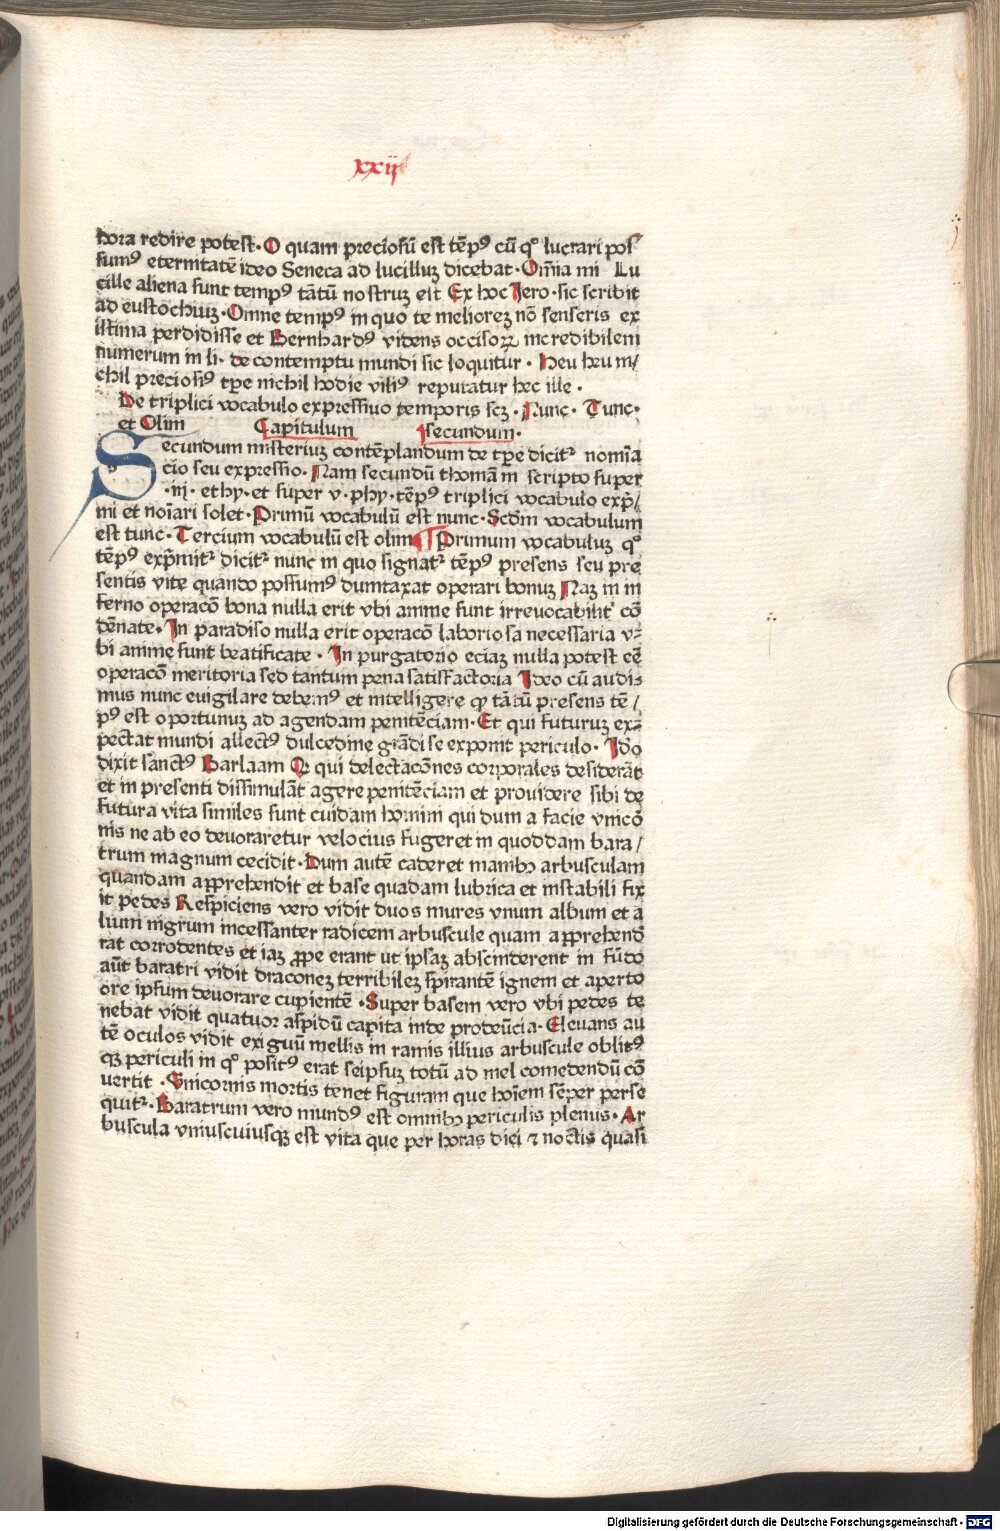 xxij
hora redire potest· O quam preciosū est tēpꝰ cū qͦ lucrari pos
sumꝰ eternitatē ideo Seneca ad lucilluꝫ dicebat· Om̄ia mi Lu
cille aliena sunt tempꝰ tātū nostruꝫ est Ex hoc Jero· sic scribit
ad eustochiuꝫ· Omne tempꝰ in quo te melioreꝫ nō senseris ex
istima perdidisse et Bernhardꝰ videns occisoꝝ incredibilem
numerum in li· de contemptu mundi sic loquitur· Heu heu ni/
chil preciosiꝰ tp̄e nichil hodie viliꝰ reputatur hec ille·
De triplici vocabulo expressiuo temporis scꝫ· Nunc· Tunc·
et Olim Capitulum secundum·
Secundum misteriuꝫ contēplandum de tp̄e dicitᷣ nomīa
cio seu expressio· Nam secundū thomam in scripto super
·iii· ethy· et super v· phy· tēpꝰ triplici vocabulo exp̄/
mi et noīari solet· Primū vocabulū est nunc· Scd̄m vocabulum
est tunc· Tercium vocabulū est olim ¶ Primum vocabuluꝫ qͦ
tēpꝰ exp̄mitᷣ dicitᷣ nunc in quo signatᷣ tēpꝰ presens seu pre
sentis vite quando possumꝰ dumtaxat operari bonuꝫ Naꝫ in in
ferno operacō bona nulla erit vbi anime sunt irreuocabilitᷣ cō
dēnate· In paradiso nulla erit operacō laboriosa necessaria v⸗
bi anime sunt beatificate· In purgatorio eciaꝫ nulla potest eē
operacō meritoria sed tantum pena satisfactoria Ideo cū audi⸗
mus nunc euigilare debemꝰ et intelligere ꝙ tātū presens tē/
pꝰ est oportunuꝫ ad agendam penitēciam· Et qui futuruꝫ ex⸗
pectat mundi allectꝰ dulcedine grādi se exponit periculo· Idͦo
dixit sanctꝰ Barlaam Qꝛ qui delectacōnes corporales desiderāt
et in presenti dissimulāt agere penitēciam et prouidere sibi de
futura vita similes sunt cuidam homini qui dum a facie vnicō
nis ne ab eo deuoraretur velocius fugeret in quoddam bara/
trum magnum cecidit· Dum autē caderet manibꝫ arbusculam
quandam apprehendit et base quadam lubrica et instabili fix
it pedes Respiciens vero vidit duos mures vnum album et a
lium nigrum incessanter radicem arbuscule quam apprehend̄
rat corrodentes et iaꝫ ꝓpe erant ut ipsaꝫ abscinderent in fūdo
aūt baratri vidit draconeꝫ terribileꝫ spirantē ignem et aperto
ore ipsum deuorare cupientē· Super basem vero vbi pedes te
nebat vidit quatuor aspidū capita inde prodeūcia· Eleuans au
tē oculos vidit exiguū mellis in ramis illius arbuscule oblitꝰ
qꝫ periculi in qͦ positꝰ erat seipsuꝫ totū ad mel comedendū cō
uertit· Vnicornis mortis tenet figuram que hoīem sēper perse
quitᷣ· Baratrum vero mundꝰ est omnibꝫ periculis plenus· Ar
buscula vniuscuiusqꝫ est vita que per horas diei ⁊ noctis quasi
Digitalisierung gefördert durch die Deutsche Forschungsgemeinschaft - DFG